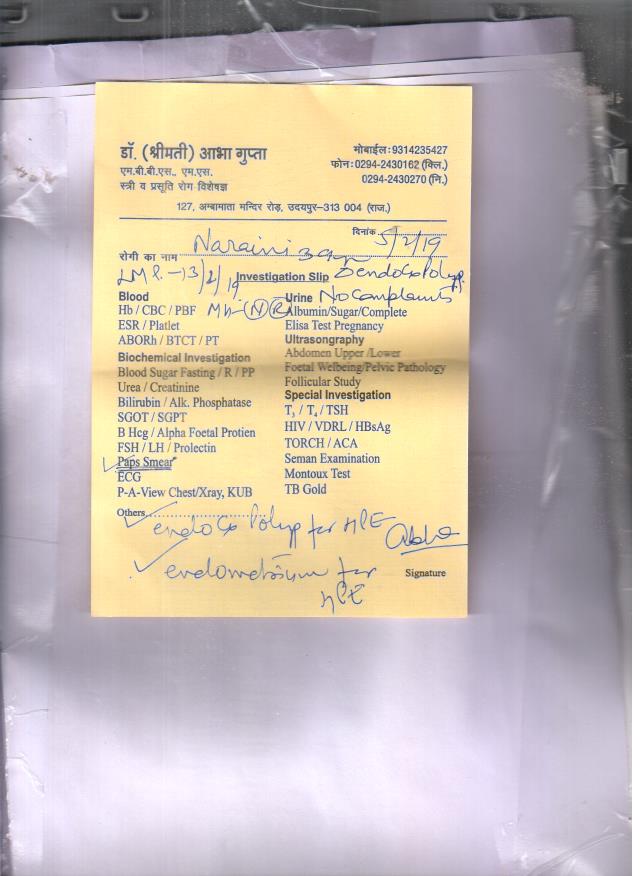 डॉ. (श्रीमती) आभा गुप्ता
एम.बी.बी.एस., एम.एस.
स्त्री व प्रसूति रोग विशेषज्ञ
मोबाईल: 9314235427
फोन: 0294-2430162 (क्लि.)
0294-2430270 (नि.)
127, अम्बामाता मन्दिर रोड़, उदयपुर-313 004 (राज.)
दिनांक 5/2/19
रोगी का नाम Naraini
LMP. - 13/2/19
Investigation Slip endoCx Polyp.
Blood
Hb / CBC / PBF
ESR / Platlet
ABORh / BTCT / PT
Biochemical Investigation
Blood Sugar Fasting / R / PP
Urea / Creatinine
Bilirubin / Alk. Phosphatase
SGOT / SGPT
B Hcg / Alpha Foetal Protien
FSH / LH / Prolectin
✓ Paps Smear
ECG
P-A-View Chest/Xray, KUB
Mh- (N) (R)
Urine No complaints
Albumin/Sugar/Complete
Elisa Test Pregnancy
Ultrasongraphy
Abdomen Upper /Lower
Foetal Welbeing/Pelvic Pathology
Follicular Study
Special Investigation
T₃ / T₄ / TSH
HIV / VDRL / HBsAg
TORCH / ACA
Seman Examination
Montoux Test
TB Gold
Others
✓ endoCx Polyp for HPE
Abha
✓ endometrium for
HPE
Signature